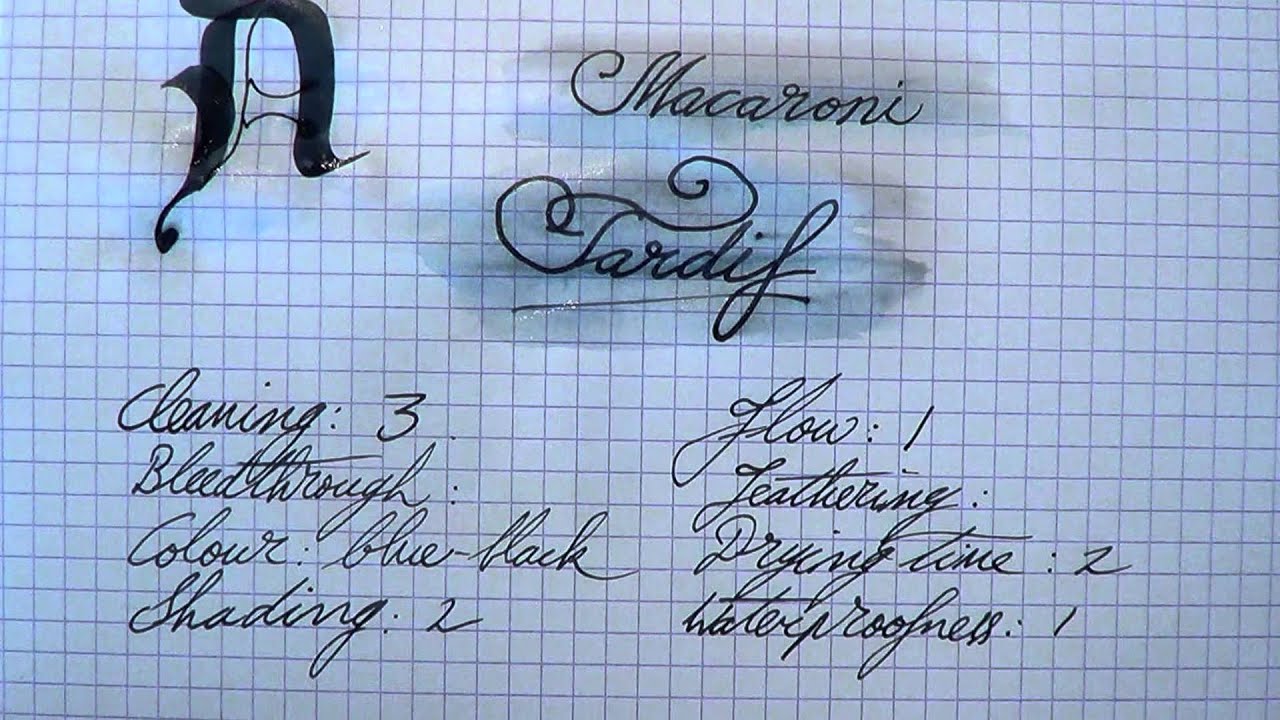 A
Macaroni
Tardif
Cleaning: 3
Bleedthrough:
Colour: blue-black
Shading: 2
Flow: 1
Feathering:
Drying time: 2
Waterproofness: 1